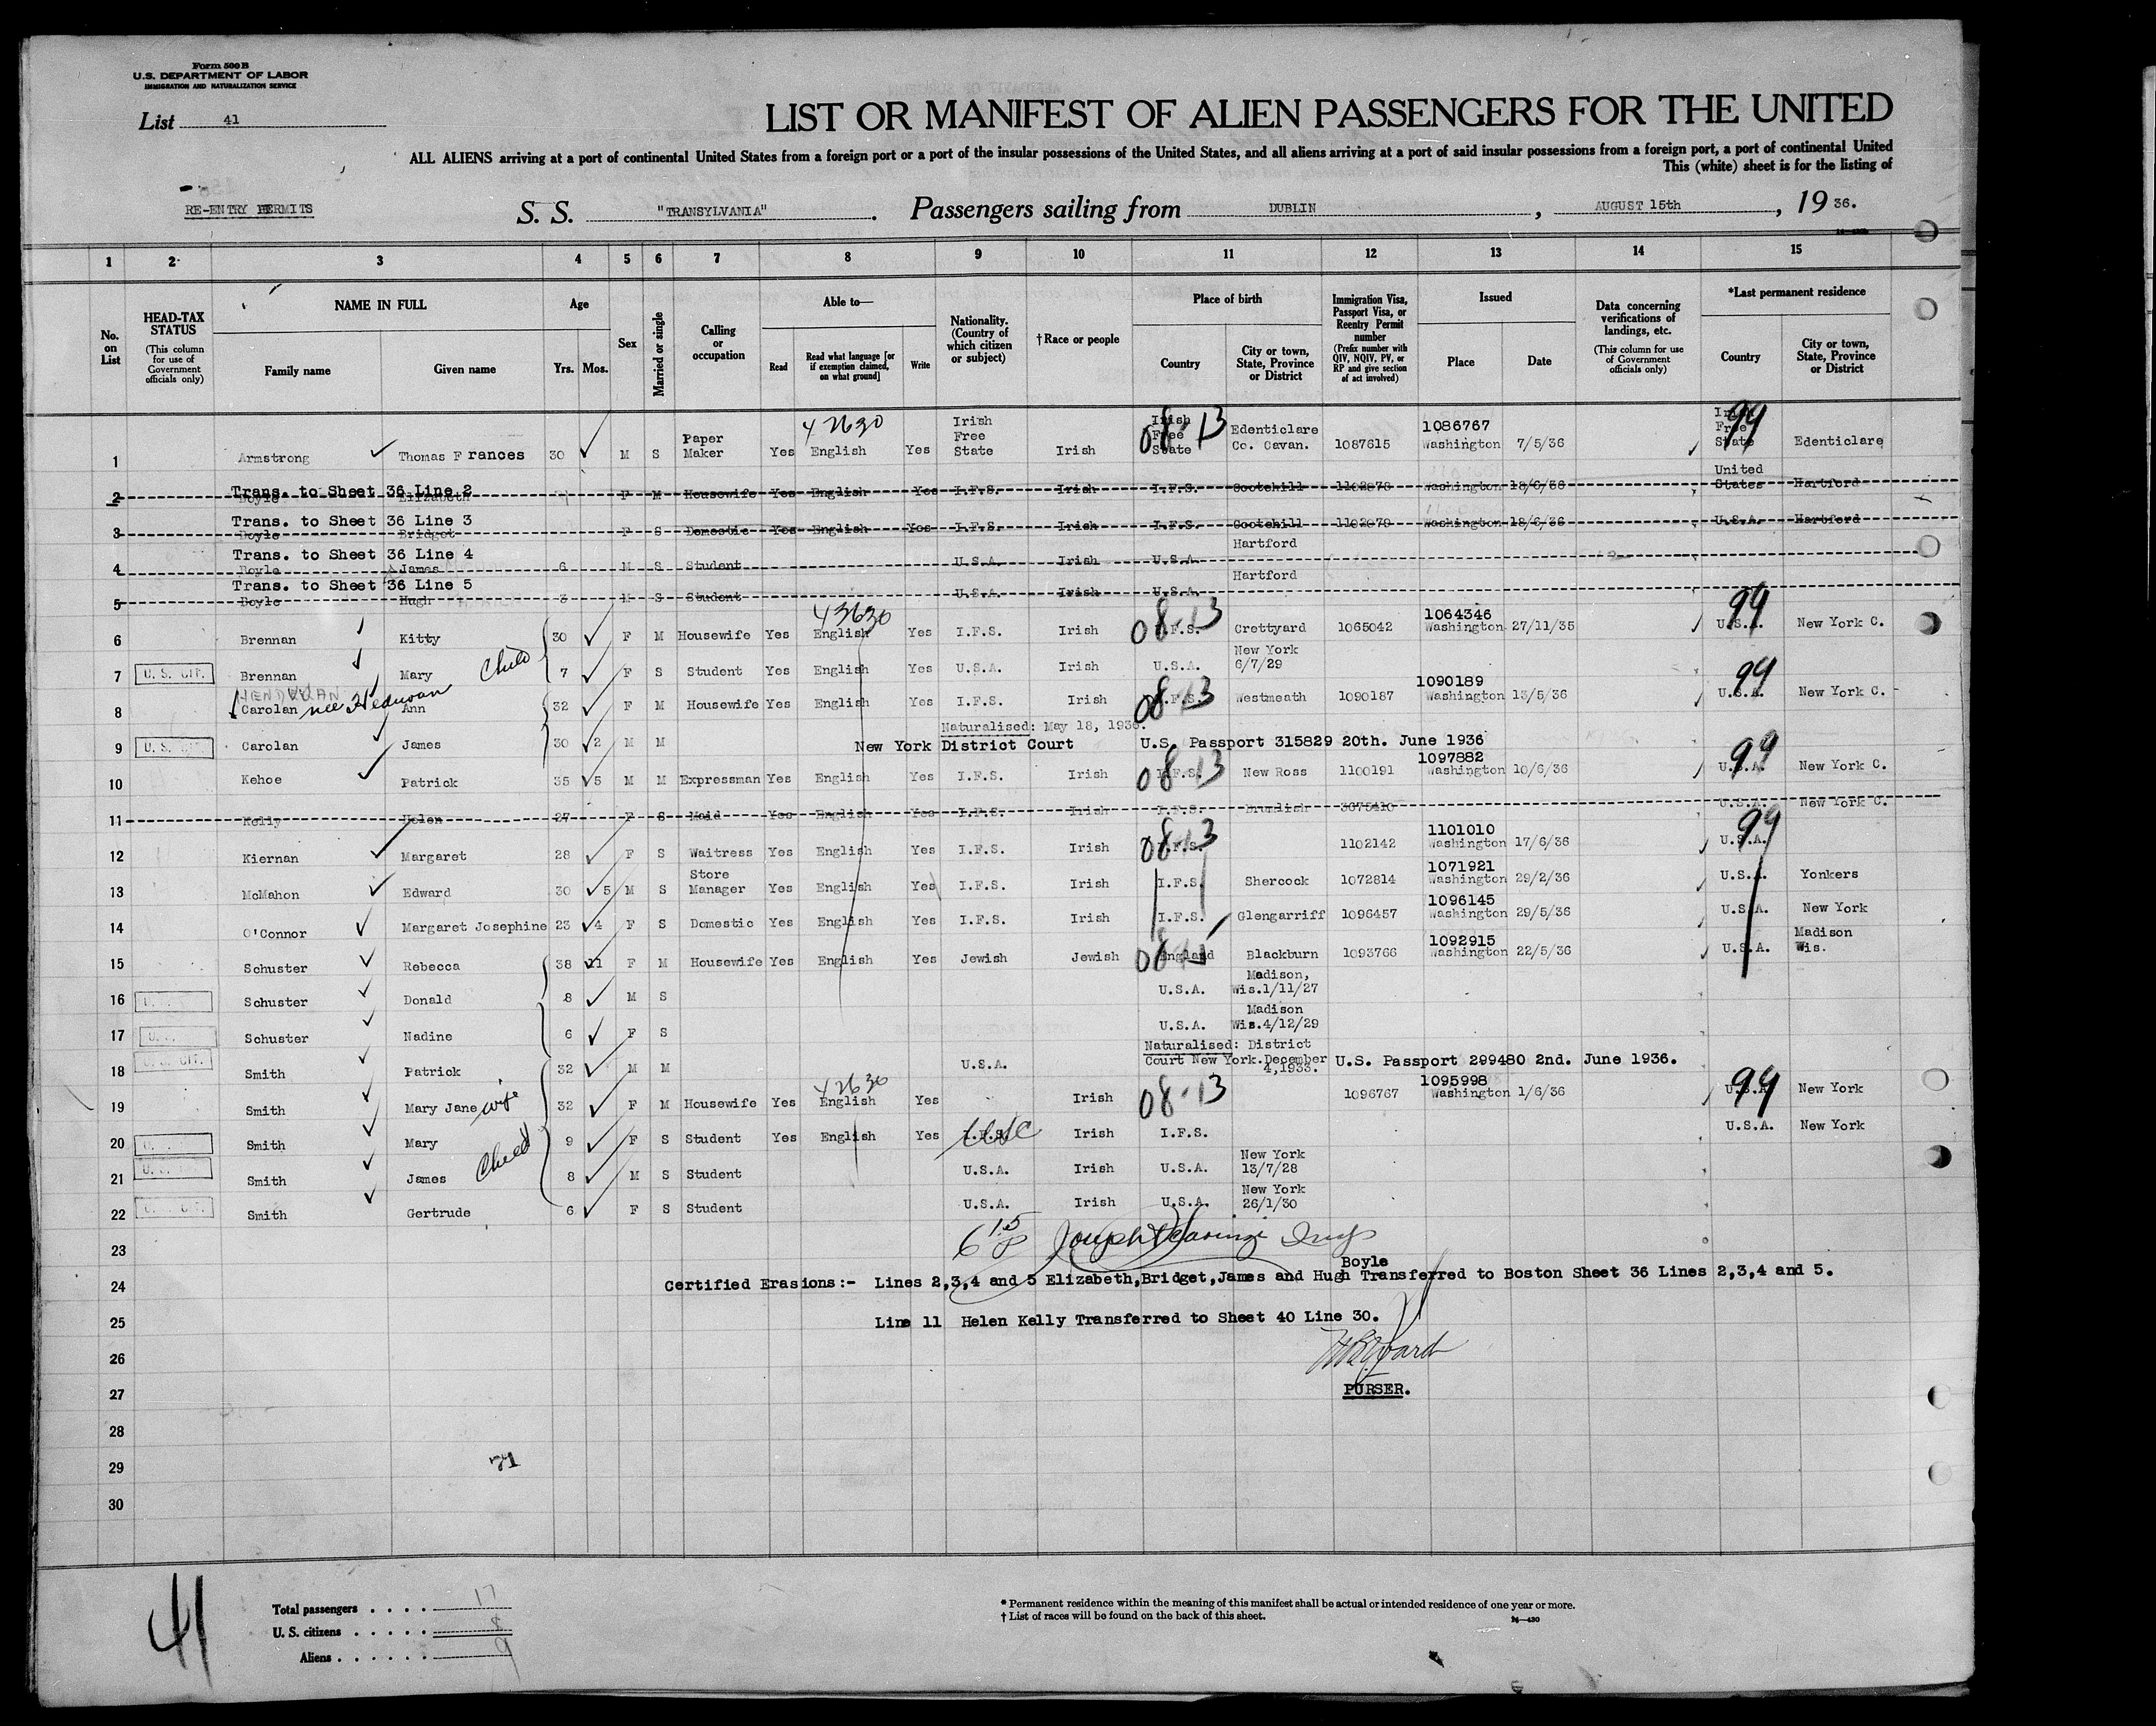 Form 500 B
U.S. DEPARTMENT OF LABOR
IMMIGRATION AND NATURALIZATION SERVICE
List 41
LIST OR MANIFEST OF ALIEN PASSENGERS FOR THE UNITED
ALL ALIENS arriving at a port of continental United States from a foreign port or a port of the insular possessions of the United States, and all aliens arriving at a port of said insular possessions from a foreign port, a port of continental United
This (white) sheet is for the listing of
RE-ENTRY PERMITS
S. S. "TRANSYLVANIA". Passengers sailing from DUBLIN, AUGUST 15th, 19 36.
1 2 3 4 5 6 7 8 9 10 11 12 13 14 15
No. on List
HEAD-TAX STATUS (This column for use of Government officials only)
NAME IN FULL Family name Given name
Age Yrs. Mos.
Sex
Married or single
Calling or occupation
Able to— Read Read what language [or if exemption claimed, on what ground] Write
Nationality. (Country of which citizen or subject)
†Race or people
Place of birth Country City or town, State, Province or District
Immigration Visa, Passport Visa, or Reentry Permit number (Prefix number with QIV, NQIV, PV, or RP and give section of act involved)
Issued Place Date
Data concerning verifications of landings, etc. (This column for use of Government officials only)
*Last permanent residence Country City or town, State, Province or District
1 Armstrong Thomas Frances 30 M S Paper Maker Yes English Yes Irish Free State Irish Irish Free State Edenticlare Co. Cavan. 1087615 1086767 Washington 7/5/36 Irish Free State Edenticlare
42630 08-13 99
2 Trans. to Sheet 36 Line 2
Boyle Elizabeth F M Housewife Yes English Yes I.F.S. Irish I.F.S. Cootehill 1102878 Washington 18/6/36 United States Hartford
3 Trans. to Sheet 36 Line 3
Boyle Bridget F S Domestic Yes English Yes I.F.S. Irish I.F.S. Cootehill 1102879 Washington 18/6/36 U.S.A. Hartford
4 Trans. to Sheet 36 Line 4
Boyle James 6 M S Student U.S.A. Irish U.S.A. Hartford
5 Trans. to Sheet 36 Line 5
Boyle Hugh 3 M S Student U.S.A. Irish U.S.A. Hartford
43630 08-13 99
6 Brennan Kitty 30 F M Housewife Yes English Yes I.F.S. Irish I.F.S. Crettyard 1065042 1064346 Washington 27/11/35 U.S.A. New York C.
7 U. S. CIT. Brennan Mary Child 7 F S Student Yes English Yes U.S.A. Irish U.S.A. New York 6/7/29
8 Carolan nee Hedwoan Ann 32 F M Housewife Yes English Yes I.F.S. Irish 08-13 I.F.S. Westmeath 1090187 1090189 Washington 13/5/36 99 U.S.A. New York C.
Naturalised: May 18, 1936.
9 U. S. CIT. Carolan James 30 2 M M New York District Court U.S. Passport 315829 20th. June 1936
10 Kehoe Patrick 35 5 M M Expressman Yes English Yes I.F.S. Irish 08-13 I.F.S. New Ross 1100191 1097882 Washington 10/6/36 99 U.S.A. New York C.
11 Kelly Helen 27 F S Maid Yes English Yes I.F.S. Irish I.F.S. U.S.A. New York C.
12 Kiernan Margaret 28 F S Waitress Yes English Yes I.F.S. Irish 08-13 I.F.S. 1102142 1101010 Washington 17/6/36 99 U.S.A.
13 McMahon Edward 30 5 M S Store Manager Yes English Yes I.F.S. Irish I.F.S. Shercock 1072814 1071921 Washington 29/2/36 U.S.A. Yonkers
14 O'Connor Margaret Josephine 23 4 F S Domestic Yes English Yes I.F.S. Irish I.F.S. Glengarriff 1096457 1096145 Washington 29/5/36 U.S.A. New York
15 Schuster Rebecca 38 11 F M Housewife Yes English Yes Jewish Jewish England Blackburn 1093766 1092915 Washington 22/5/36 U.S.A. Madison Wis.
16 Schuster Donald 8 M S U.S.A. Madison, Wis.1/11/27
17 Schuster Nadine 6 F S U.S.A. Madison Wis.4/12/29
18 U. S. CIT. Smith Patrick 32 M M U.S.A. Naturalised: District Court New York. December 4,1933. U.S. Passport 299480 2nd. June 1936.
19 Smith Mary Jane wife 32 F M Housewife Yes 42630 English Yes Irish 08-13 1096767 1095998 Washington 1/6/36 99 U.S.A. New York
20 Smith Mary 9 F S Student Yes English Yes I.F.S. USC Irish I.F.S. U.S.A. New York
21 Smith James Child 8 M S Student U.S.A. Irish U.S.A. New York 13/7/28
22 Smith Gertrude 6 F S Student U.S.A. Irish U.S.A. New York 26/1/30
23
24 Certified Erasions:- Lines 2,3,4 and 5 Elizabeth,Bridget,James and Hugh Boyle Transferred to Boston Sheet 36 Lines 2,3,4 and 5.
25 Line 11 Helen Kelly Transferred to Sheet 40 Line 30.
26
27 PURSER.
28
29 71
30
41
Total passengers 17
U. S. citizens 8
Aliens 9
* Permanent residence within the meaning of this manifest shall be actual or intended residence of one year or more.
† List of races will be found on the back of this sheet.